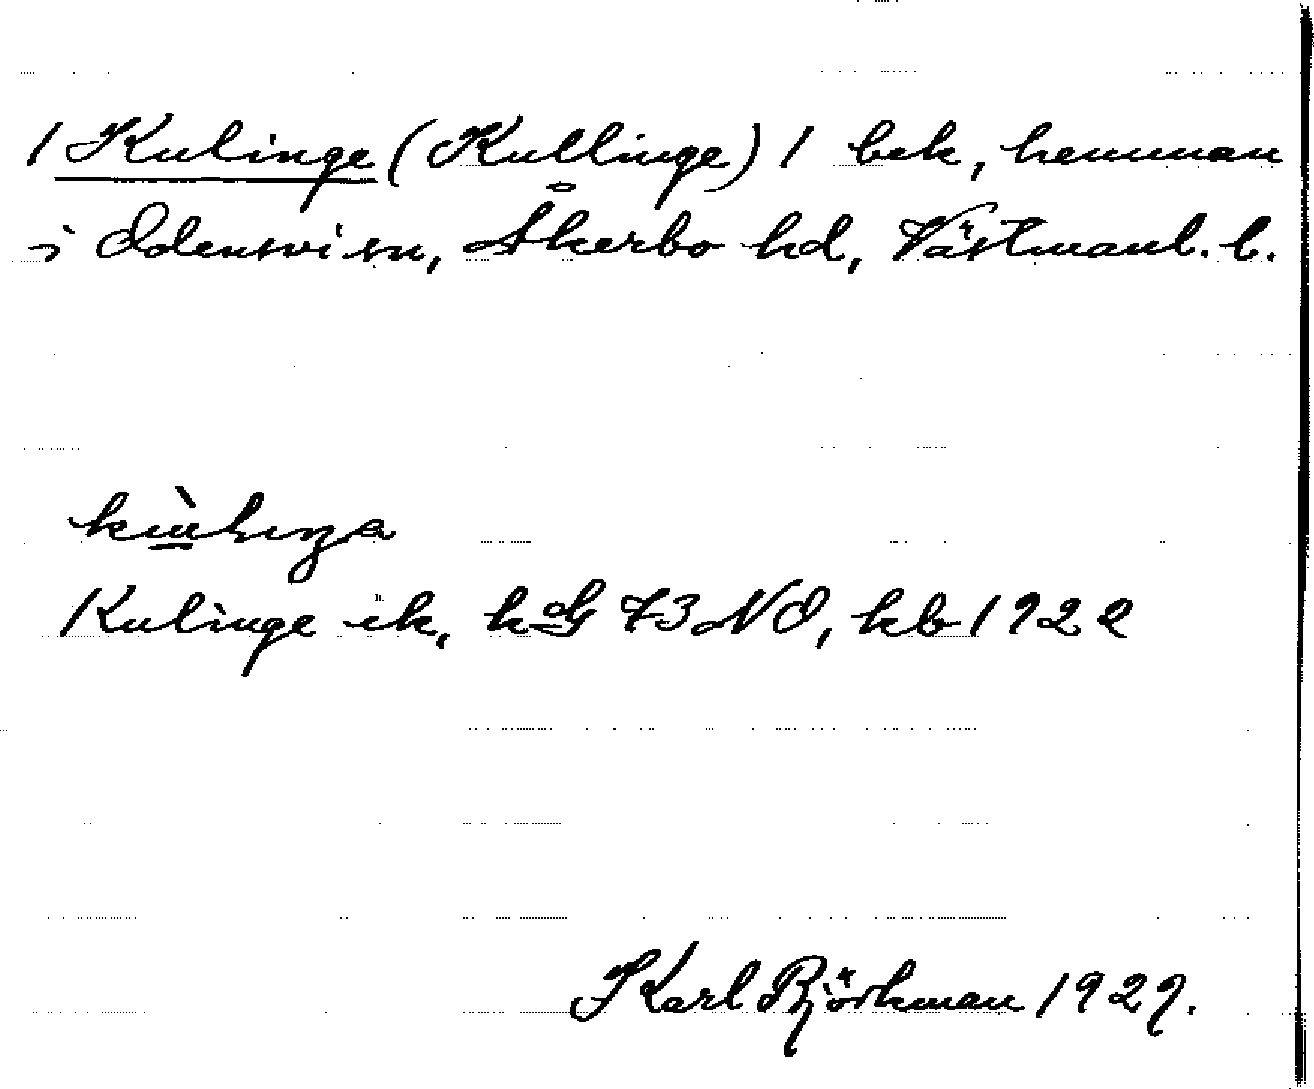 1 Kulinge (Kullinge) 1 bek, hemman
i Odensvi sn, Åkerbo hd, Västmanl. l.
Kulinge ek, 73 NO, kb 1922
Karl Björkman 1927.